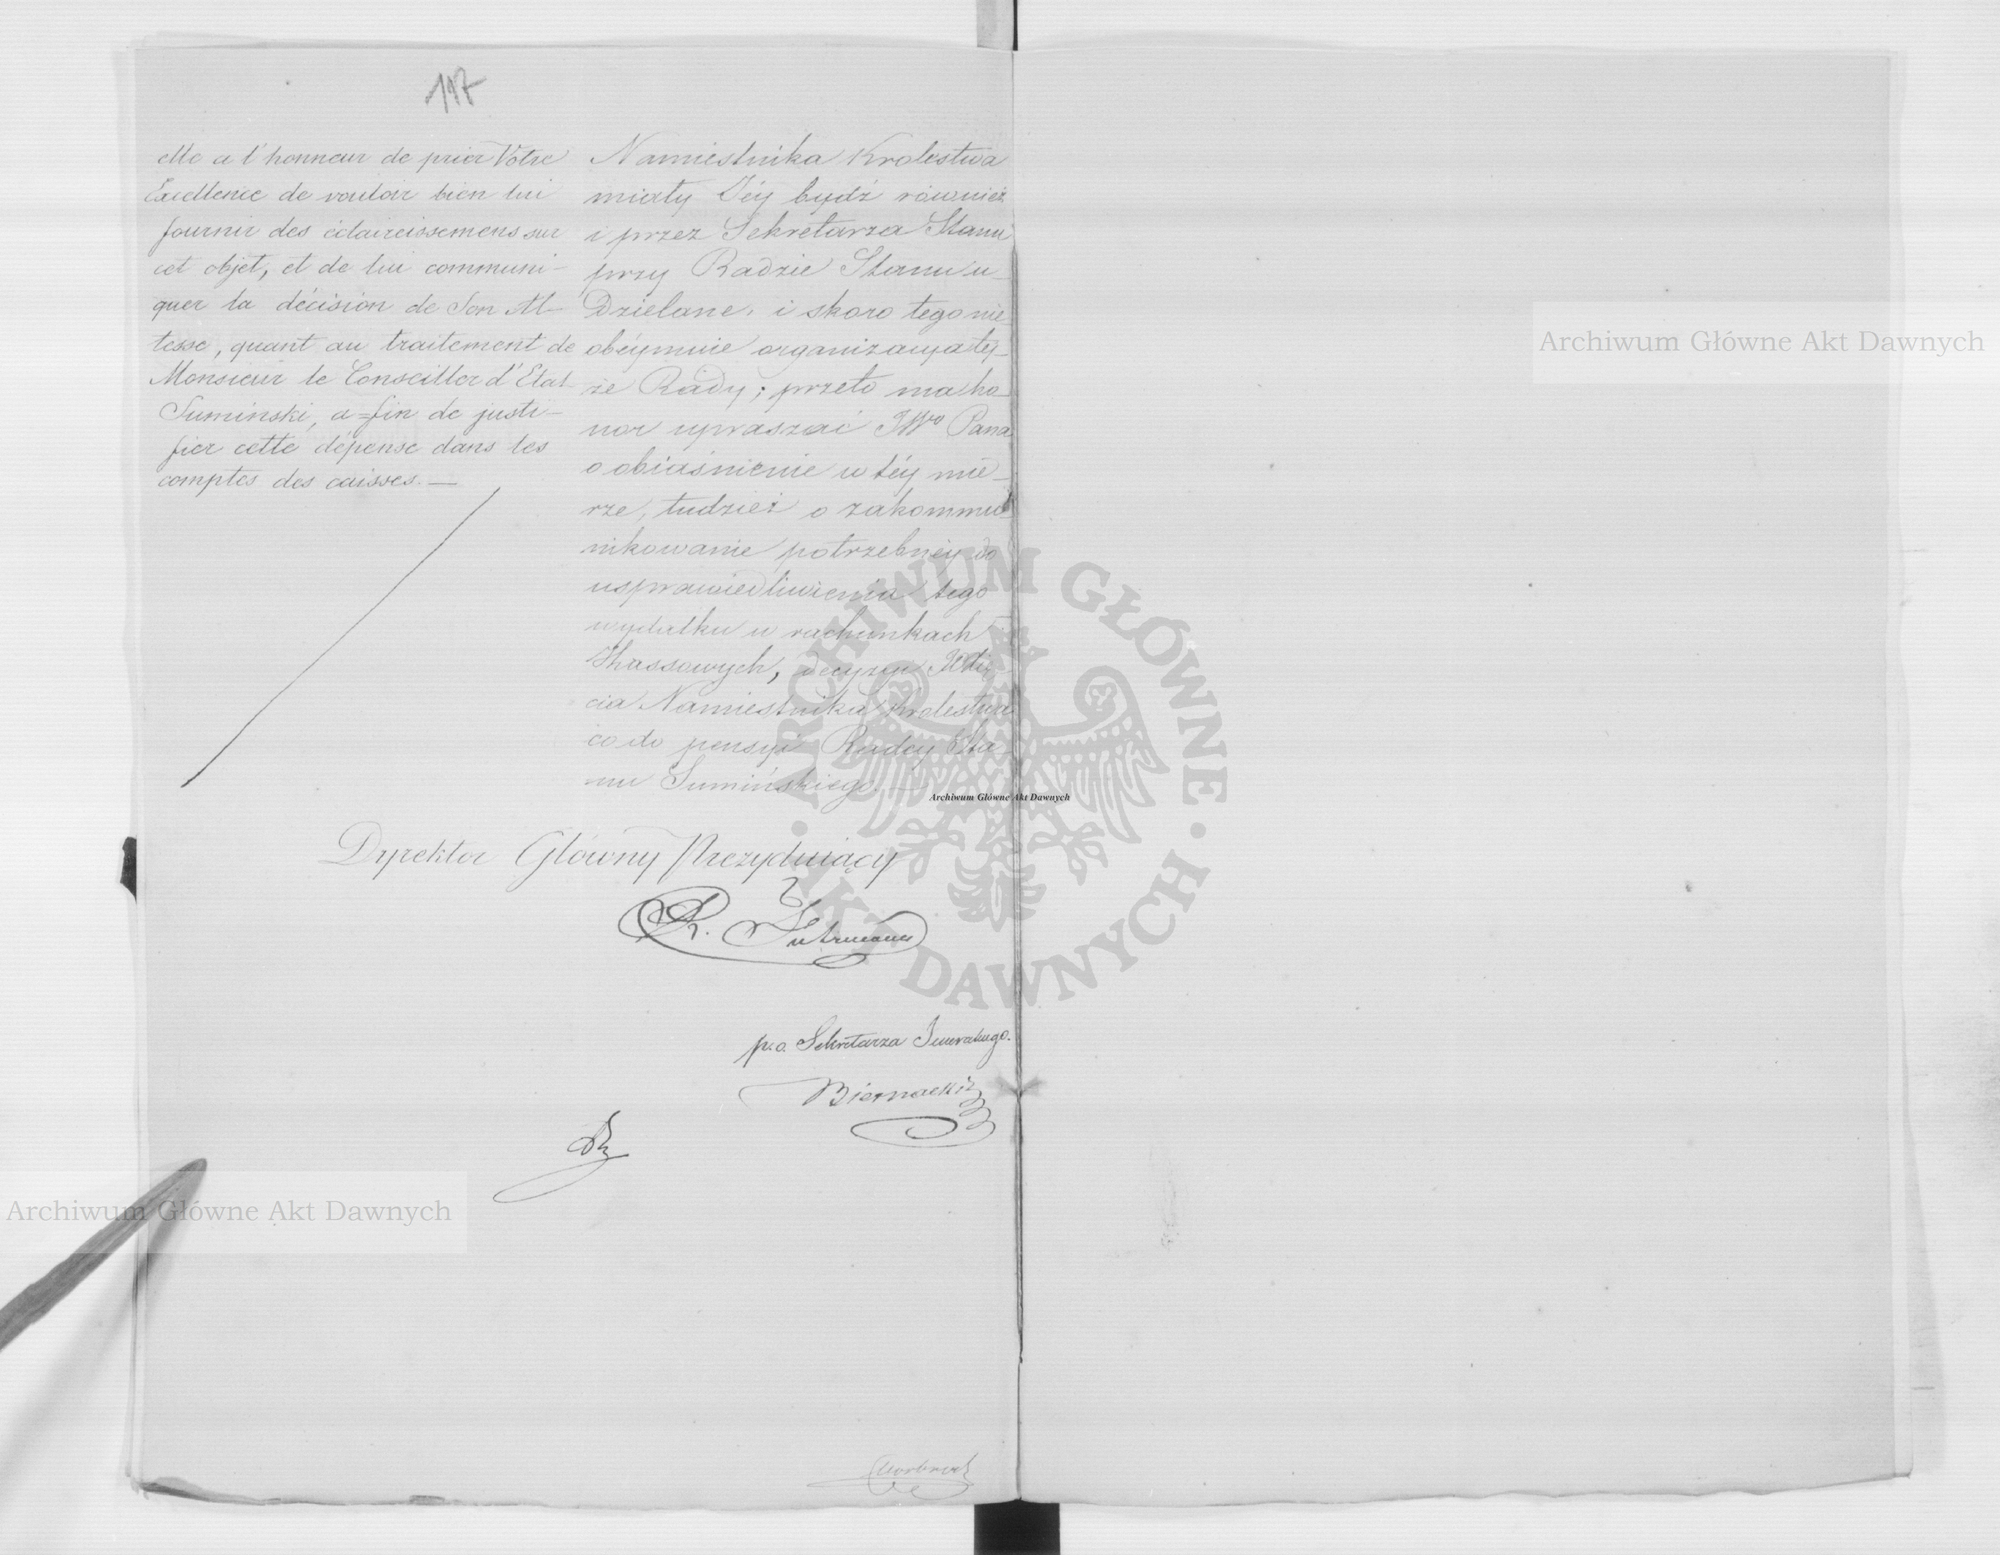 117
elle a l'honneur de prier Votre
Excellence de vouloir bien lui
fournir des éclaircissemens sur
cet objet, et de lui communi-
quer la décision de Son Al-
tesse, quant au traitement de
Monsieur le Conseiller d'Etat
Suminski, a=fin de justi-
fier cette dépense dans les
comptes des caisses. —
Namiestnika Krolestwa
miały Jéy bydź również
i przez Sekretarza Stanu
przy Radzie Stanu u-
dzielane, i skoro tego nie
obéymuie organizacya téy-
że Rady; przeto ma ho-
nor upraszać JWo Pana
o obiaśnienie w téy mie-
rze, tudzież o zakommu-
nikowanie potrzebnéy do
usprawiedliwienia tego
wydatku w rachunkach
Kassowych, decyzyi
cia Namiestnika Krolestwa
co do pensyi Radcy Sta-
nu Sumińskiego. —
Dyrektor Główny Prezyduiący
p.o. Sekretarza Jeneralnego.
Biernacki
Archiwum Główne Akt Dawnych
Archiwum Główne Akt Dawnych
Archiwum Główne Akt Dawnych
ARCHIWUM GŁÓWNE · AKT DAWNYCH ·